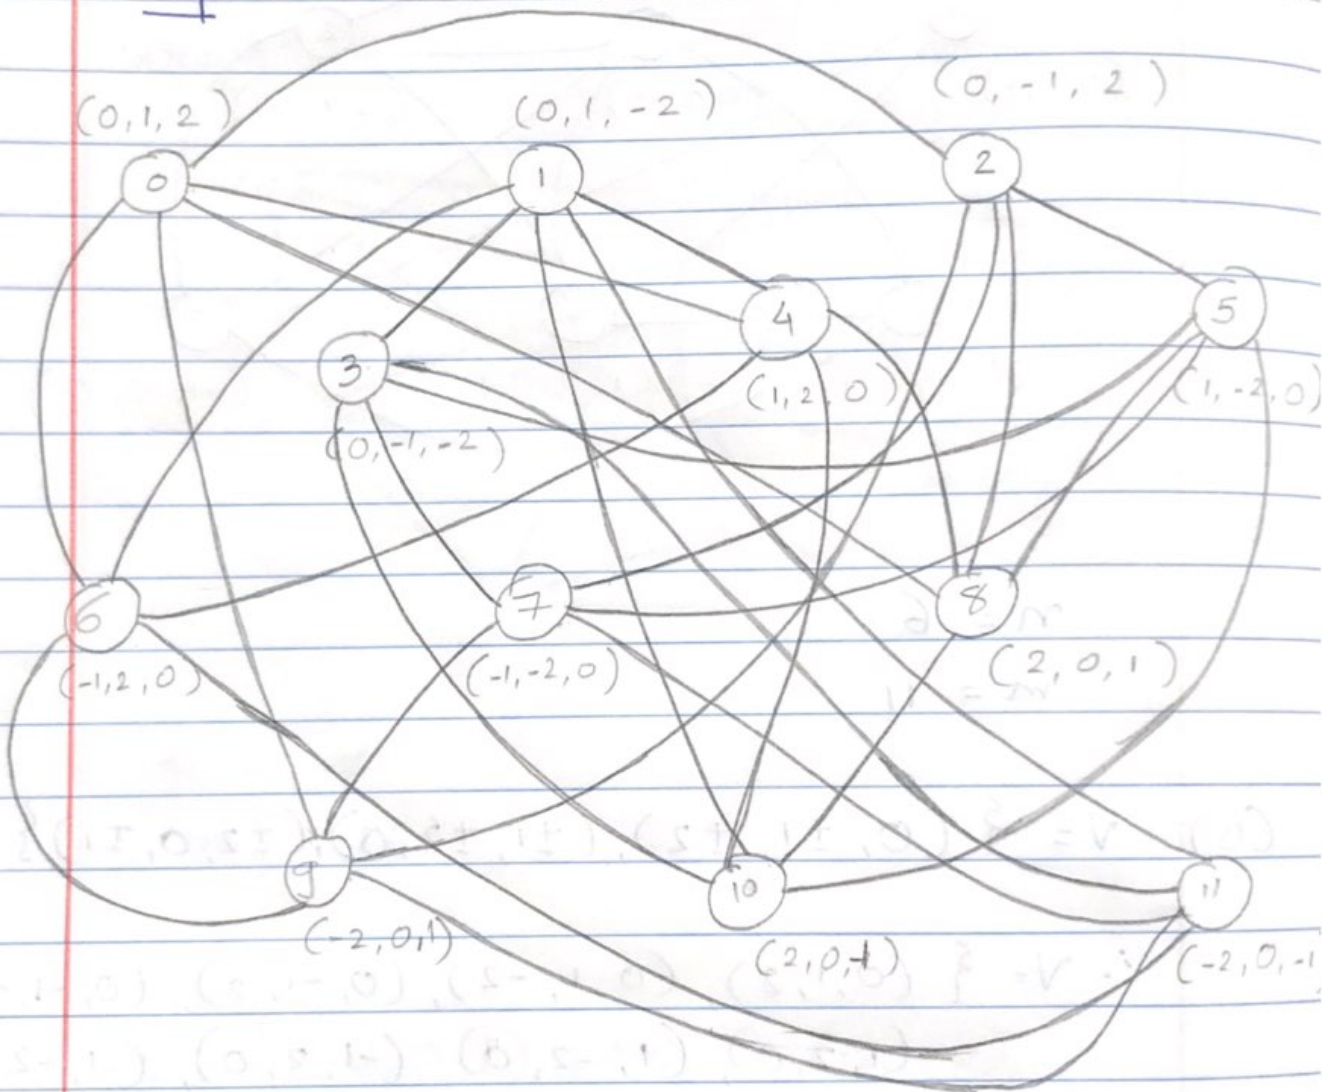 (0, 1, 2)
(0, 1, -2)
(0, -1, 2)
0
1
2
3
4
5
(0, -1, -2)
(1, 2, 0)
(1, -2, 0)
6
7
8
(-1, 2, 0)
(-1, -2, 0)
(2, 0, 1)
9
10
11
(-2, 0, 1)
(2, 0, -1)
(-2, 0, -1